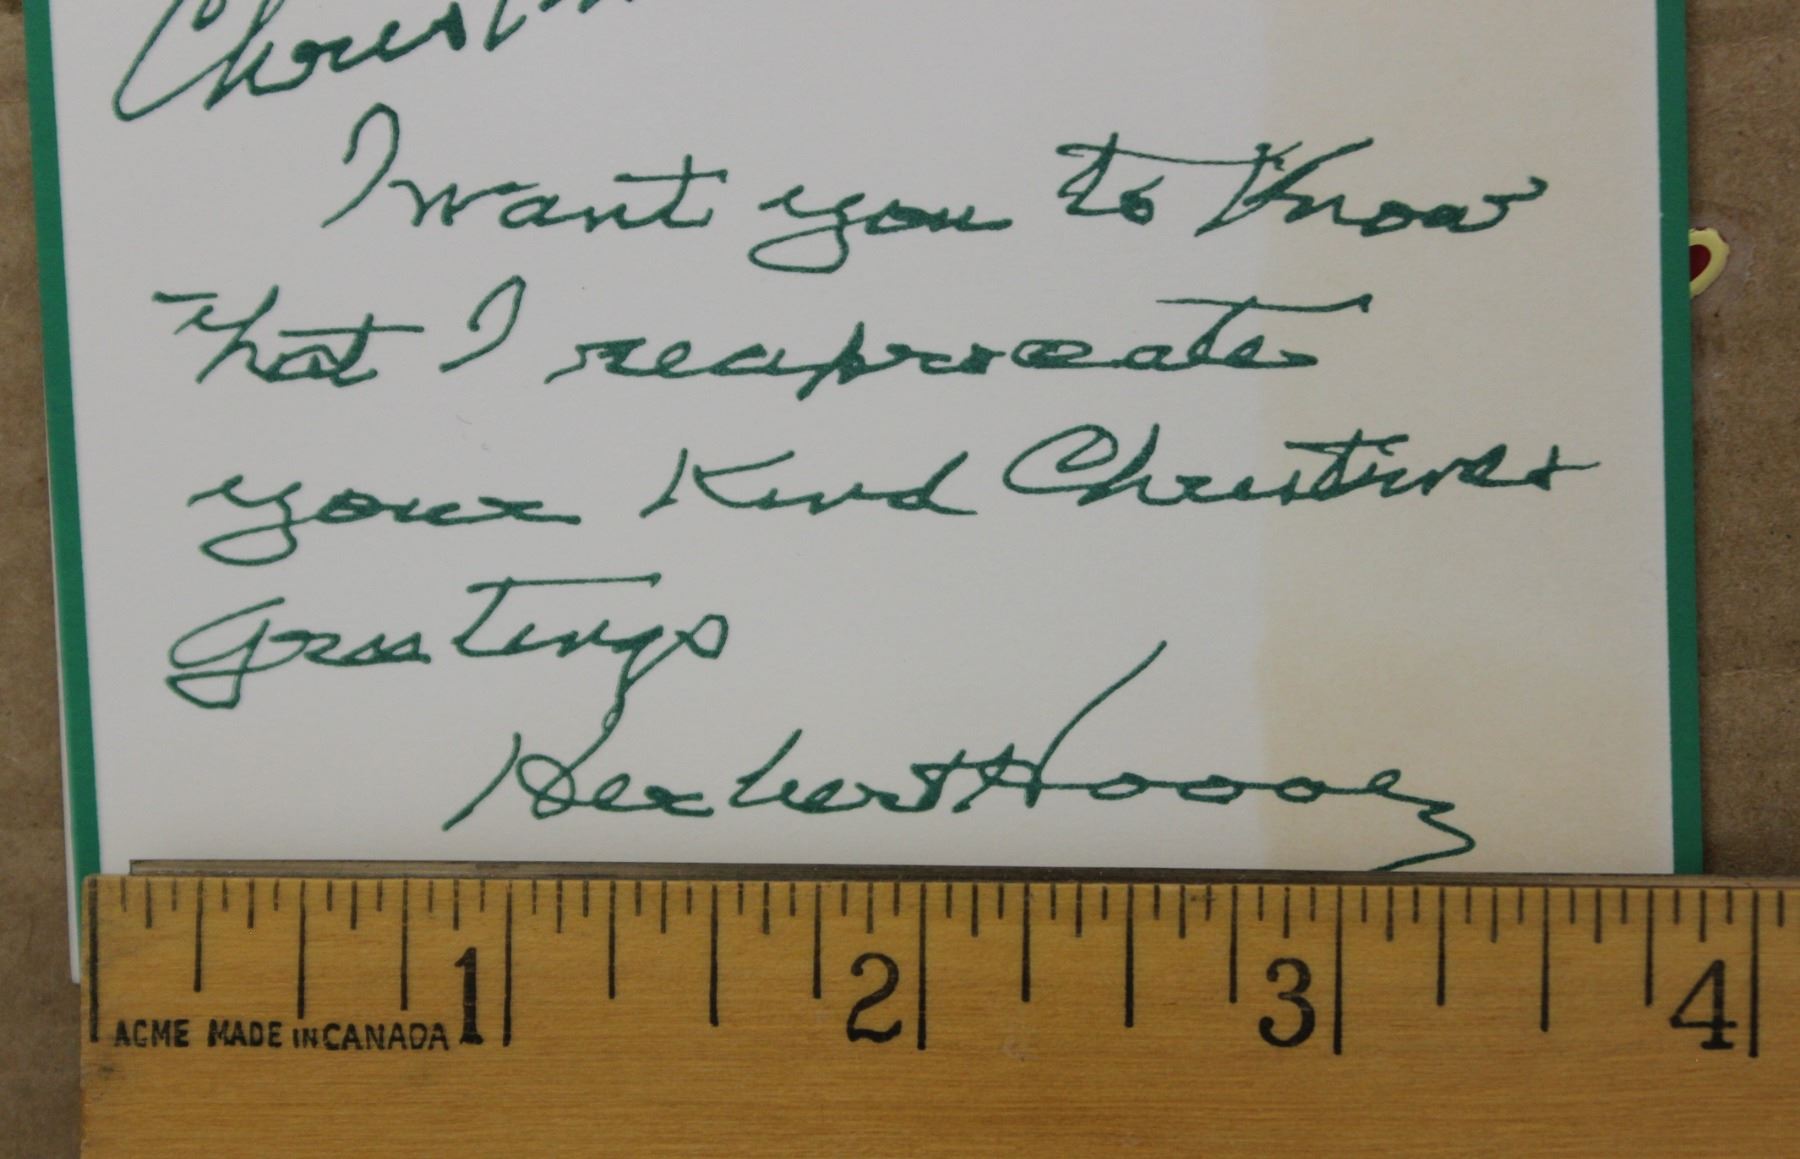 Christm
I want you to know
that I reciprocate
your kind Christmas
greetings
Herbert Hoover
1 2 3 4
ACME MADE IN CANADA